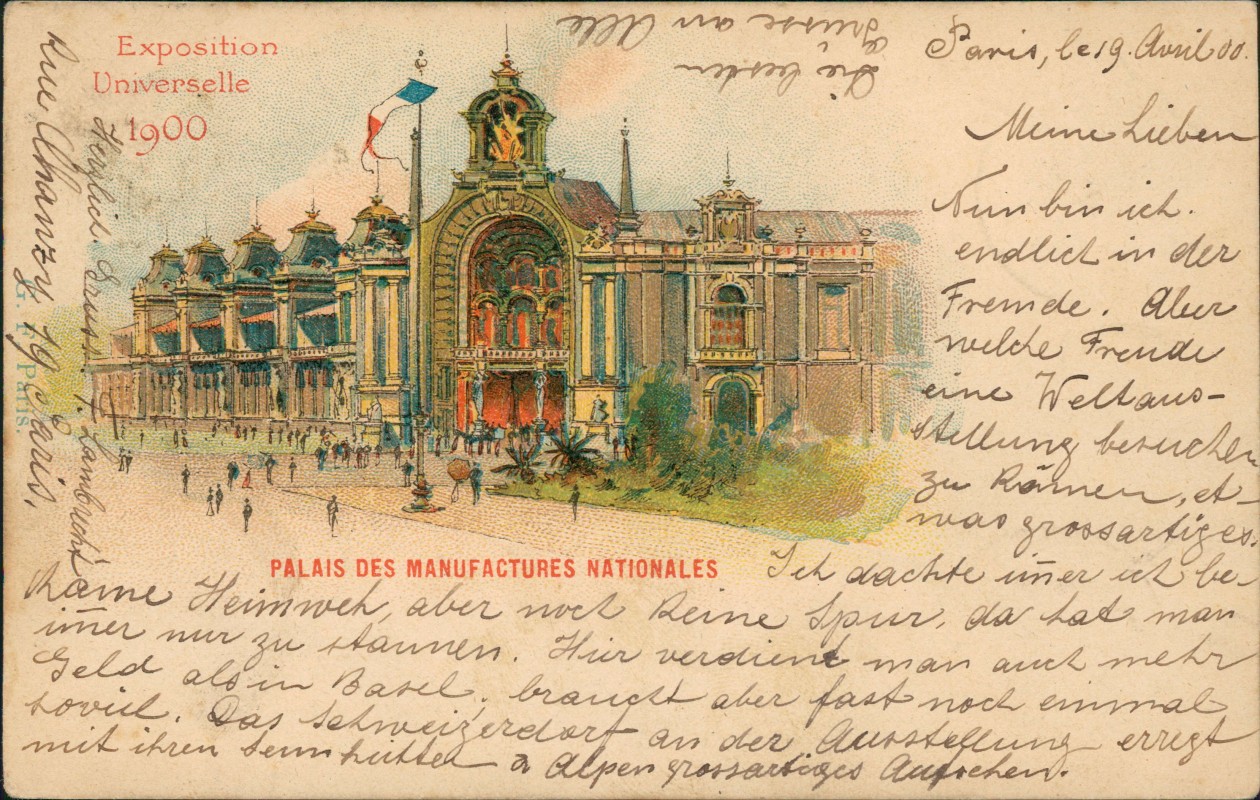 Exposition
Universelle
1900
Paris, le 19. Avril 00.
Meine Lieben
Nun bin ich.
endlich in der
Fremde. Aber
welche Freude
eine Weltaus-
stellung besuchen
zu können, et-
was grossartiges.
PALAIS DES MANUFACTURES NATIONALES
Ich dachte im̄er ich be-
käme Heimweh, aber noch keine Spur, da hat man
im̄er nur zu staunen. Hier verdient man auch mehr
Geld als in Basel, braucht aber fast noch einmal
soviel. Das Schweizerdorf an der Ausstellung erregt
mit ihren Sennhütten & Alpen grossartiges Aufsehen.
Herzlich. Gruss. Lambrecht
Rue Chanzy 19 Paris.
Die besten
Grüsse an Alle
Paris.